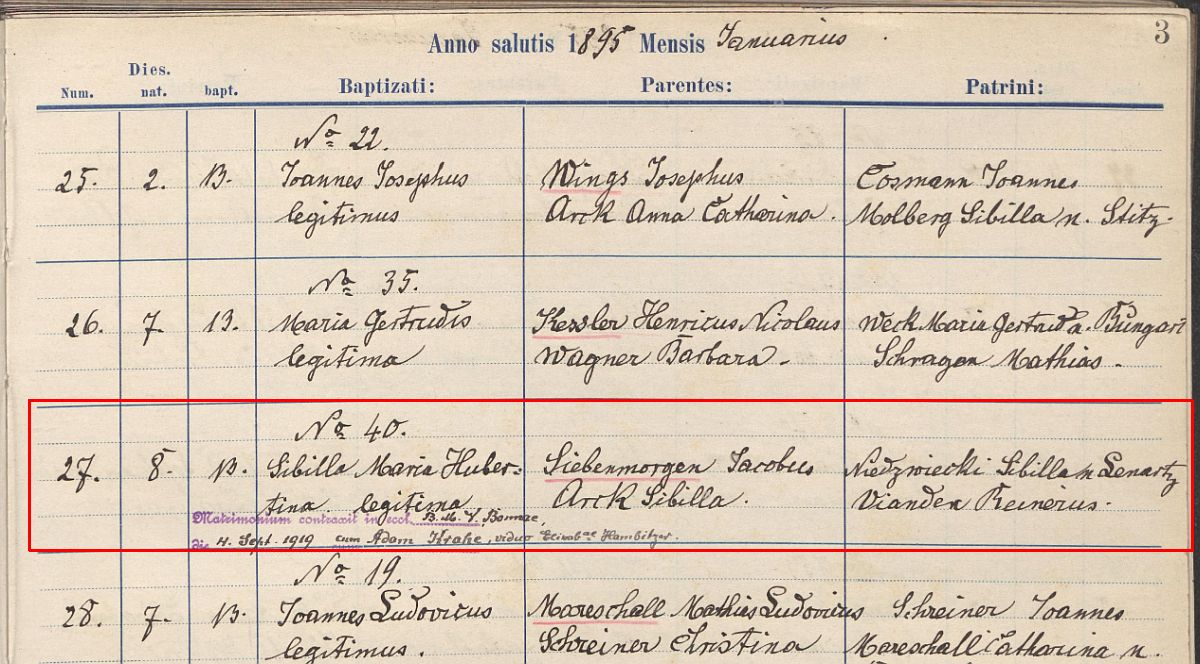 3
Anno salutis 1895 Mensis Ianuarius.
Num. Dies. nat. bapt. Baptizati: Parentes: Patrini:
No 22.
25. 2. 13. Ioannes Iosephus Wings Iosephus Cosmann Ioannes
legitimus Arck Anna Catharina. Molberg Sibilla n. Stitz.
No 35.
26. 7. 13. Maria Gertrudis Kessler Henricus Nicolaus Weck Maria Gertrud n. Bungart
legitima Wagner Barbara - Schragen Mathias.
No 40.
27. 8. 13. Sibilla Maria Huber= Siebenmorgen Iacobus Niedzwiecki Sibilla n. Lenartz
tina. legitima Arck Sibilla. Vianden Reinerus.
Matrimonium contraxit in eccl. B. M. V. Bonnae,
die 4. Sept. 1919 cum Adam Krahe, viduo Elisab.ae Hambitzer.
No 19.
28. 7. 13. Ioannes Ludovicus Mareschall Mathias Ludovicus Schreiner Ioannes
legitimus. Schreiner Christina Mareschall Catharina n.